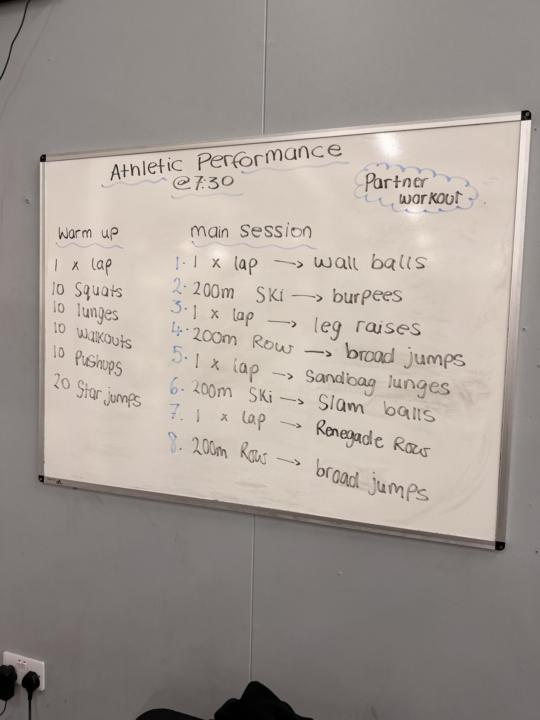 Athletic Performance
@7:30
Partner
workout
Warm up
1 x lap
10 Squats
10 lunges
10 Walkouts
10 Pushups
20 Star jumps
main session
1. 1 x lap → wall balls
2. 200m Ski → burpees
3. 1 x lap → leg raises
4. 200m Row → broad jumps
5. 1 x lap → Sandbag lunges
6. 200m Ski → Slam balls
7. 1 x lap → Renegade Row
8. 200m Row → broad jumps